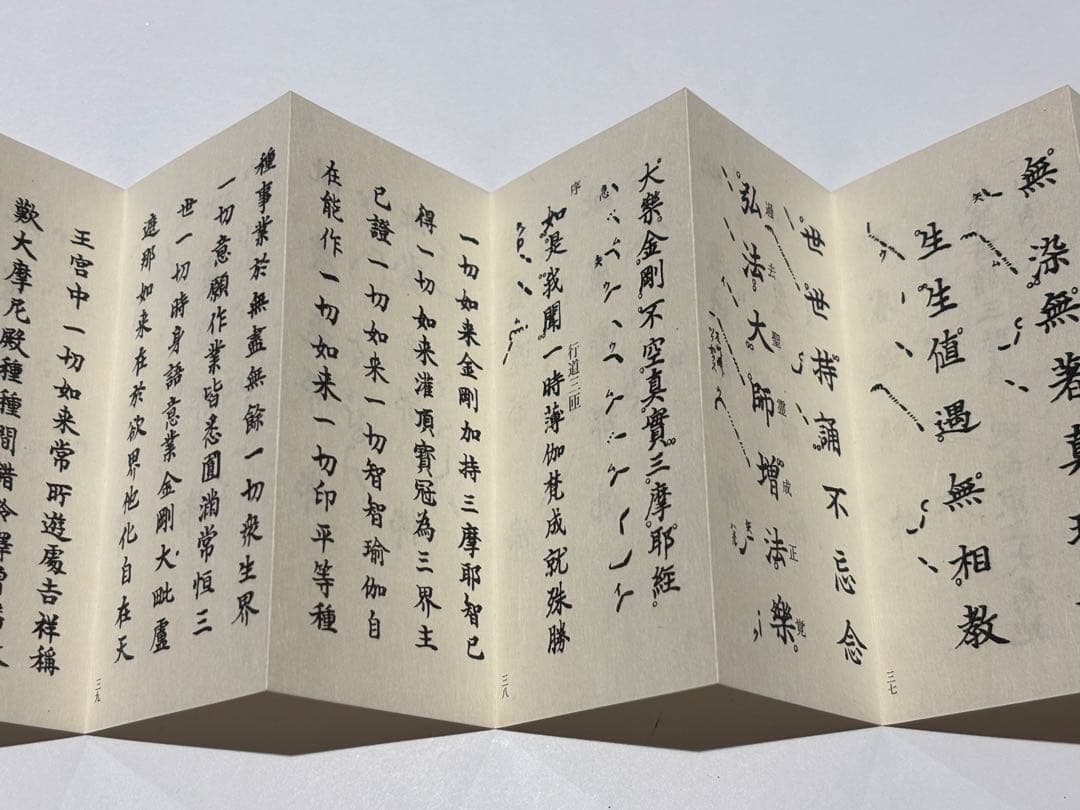 無染無著真
生生値遇無相教
世世持誦不忘念
過去聖靈成正覺
弘法大師增法樂
三七
大樂金剛不空真實三摩耶経
序
行道三匝
如是我聞一時薄伽梵成就殊勝
一切如来金剛加持三摩耶智已
得一切如来灌頂寶冠為三界主
三八
已證一切如来一切智智瑜伽自
在能作一切如来一切印平等種
種事業於無盡無餘一切衆生界
一切意願作業皆悉圓満常恒三
世一切時身語意業金剛大毗盧
遮那如来在於欲界他化自在天
三九
王宮中一切如来常所遊處吉祥稱
歎大摩尼殿種種間錯鈴鐸繒